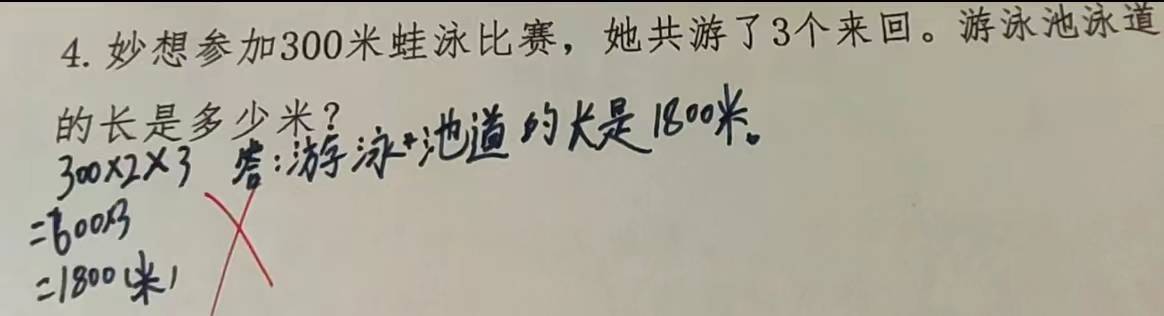 4. 妙想参加300米蛙泳比赛，她共游了3个来回。游泳池泳道
的长是多少米？
300×2×3 答：游泳池道的长是1800米。
=600×3
=1800(米)